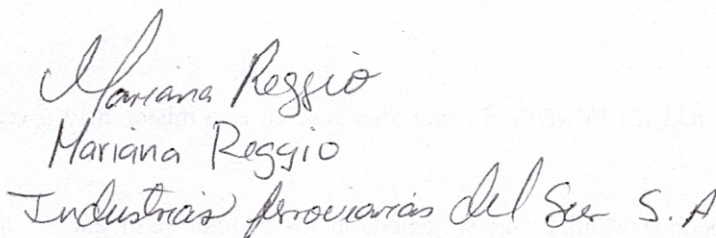 Mariana Reggio
Mariana Reggio
Industrias ferroviarias del Sur S. A